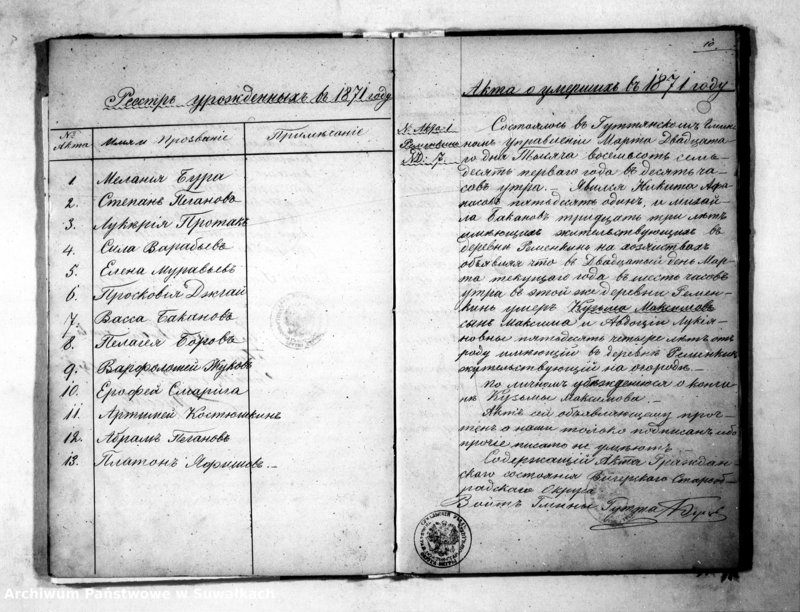 Реестръ урожденныхъ въ 1871 году
№ Акта Имя и Прозваніе Примѣчаніе
1 Меланія Бура
2. Степанъ Пѣгановъ
3. Луккрія Протакъ
4. Сила Варабьевъ
5. Елена Муравьевъ
6. Просковія Джгай
7. Васса Бакановъ
8. Пелагея Боровъ
9. Варфоломей Жуковъ
10. Ерофей Смарига
11. Артимей Костюшкинъ
12. Абрамъ Пѣгановъ
13. Платонъ
10.
Акта о умершихъ въ 1871 году
№ Акта 1
Ременкинь
№ Д: 7.
Состоялось въ Гуттянскомъ Гмин-
номъ управленіи Марта Двадцата-
го дня Тысяга восемьсотъ семь-
десять перваго года въ десять ча-
совъ утра. Явился Никита Афа-
насовъ пятьдесятъ одинъ, и михай-
ла Бакановъ тридцать три лѣтъ
имеющихъ жительствующихъ въ
деревнѣ Ременкинь на хозяйствахъ
объявляя что въ Двадцатый день Мар-
та текущаго года въ шесть часовъ
утра въ этой же деревни Ремен-
кинь умеръ Кузьма Максимовъ
сынъ Максима и Авдотіи Лукія-
новны пятьдесятъ четыре лѣтъ отъ
роду имеющій въ деревнѣ Ременкинь
жительствующій на огородѣ.
по личномъ убѣжденіюся о кончи-
нѣ Кузьмы Максимова. –
Актъ сей объявляющему проч-
тенъ о нами только подписанъ ибо
прочіе писать не умѣютъ. –
Содержащій Акта Граждан-
скаго состоянія Вигерскаго Староо-
градскаго Округа
Войтъ Гмины Гутта
Archiwum Państwowe w Suwałkach